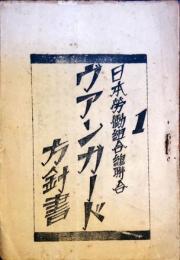 1
日本労働組合総聯合
ヴアンガード
方針書